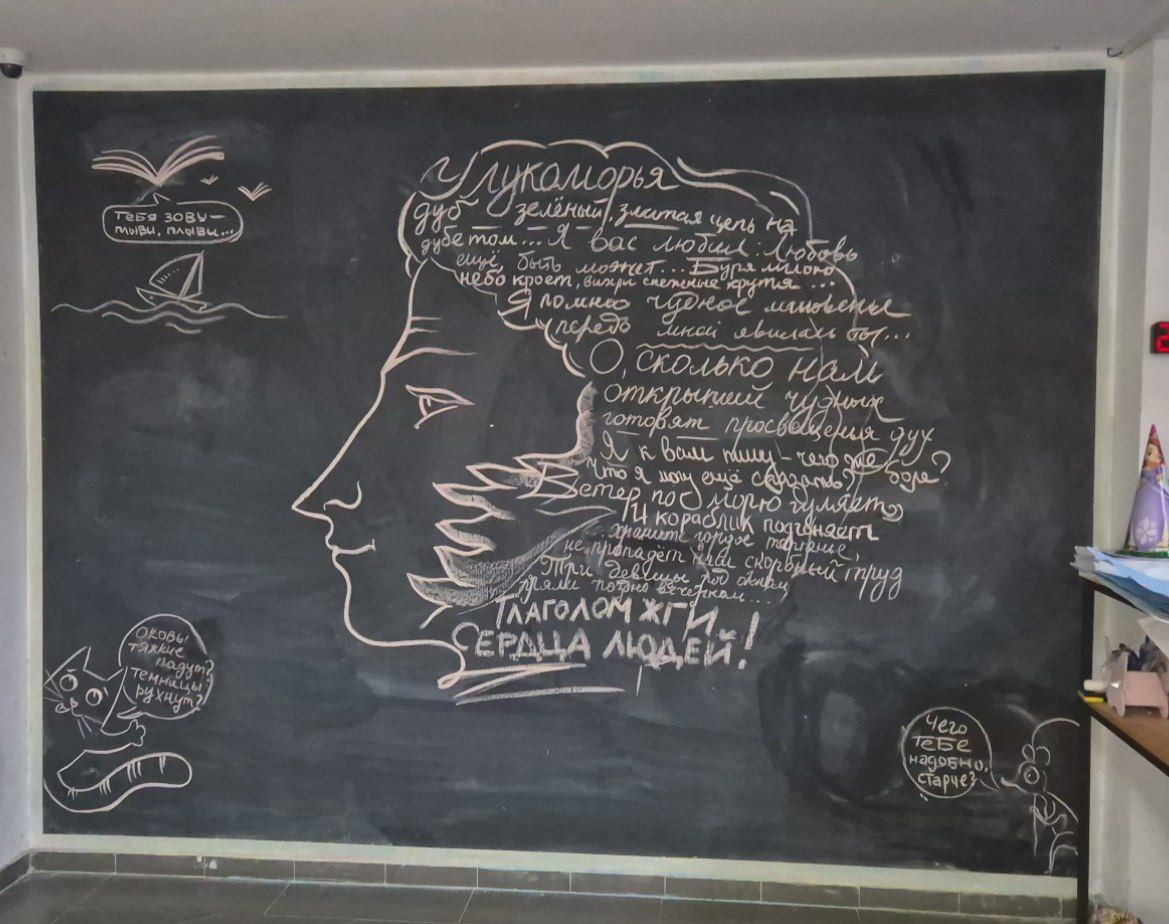 Тебя зову—
плыви, плыви...
У лукоморья
дуб зелёный, златая цепь на
дубе том... Я вас любил: Любовь
ещё, быть может... Буря мглою
небо кроет, вихри снежные крутя...
Я помню чудное мгновенье
передо мной явилась ты...
О, сколько нам
открытий чудных
готовят просвещенья дух
Я к вам пишу – чего же боле?
Что я могу ещё сказать?
Ветер по морю гуляет
И кораблик подгоняет
...храните гордое терпенье,
не пропадёт ваш скорбный труд
Три девицы под окном
пряли поздно вечерком...
Глаголом жги
Сердца людей!
Оковы
тяжкие
падут?
Темницы
рухнут?
Чего
тебе
надобно,
старче?